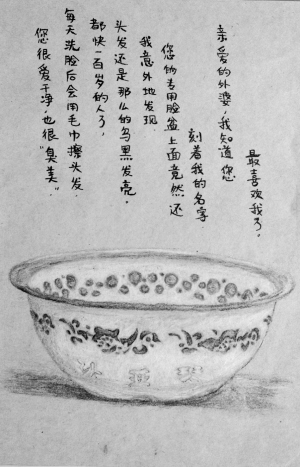 您很爱干净，也很“臭美”．
每天洗脸后会用毛巾擦头发．
都快一百岁的人了，
头发还是那么的乌黑发亮．
我意外地发现
您的专用脸盆上面竟然还
刻着我的名字
亲爱的外婆，我知道您
最喜欢我了．